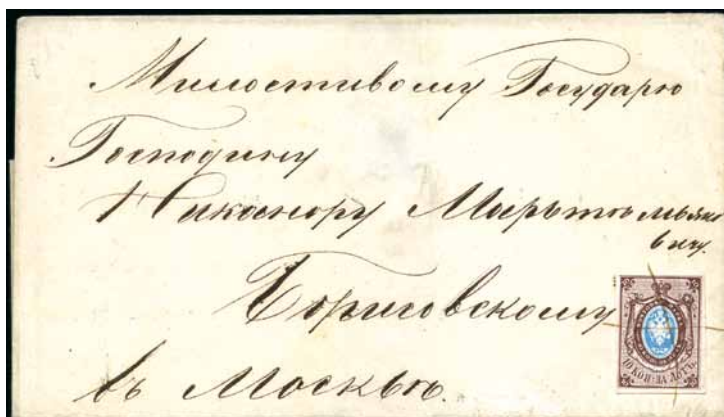 Милостивому Государю
Господину
Никанору Мартемьяно
вичу.
Борисовскому
въ Москвѣ.
10 КОП. ЗА ЛОТЪ